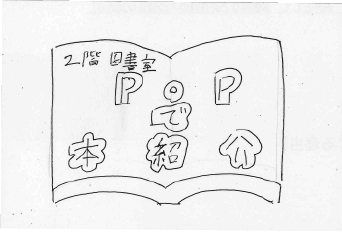 2階 図書室
POP
で
本紹介